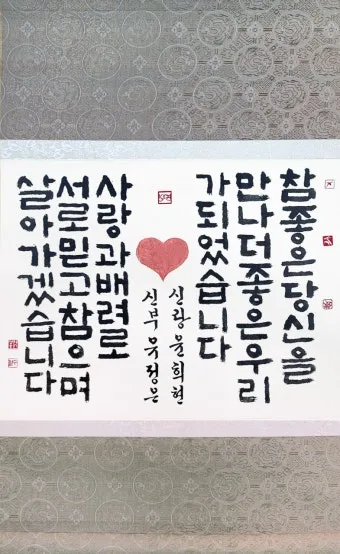 참 좋은 당신을
만나 더 좋은 우리
가 되었습니다
신랑 윤희현
신부 유정은
사랑과 배려로
서로 믿고 참으며
살아가겠습니다